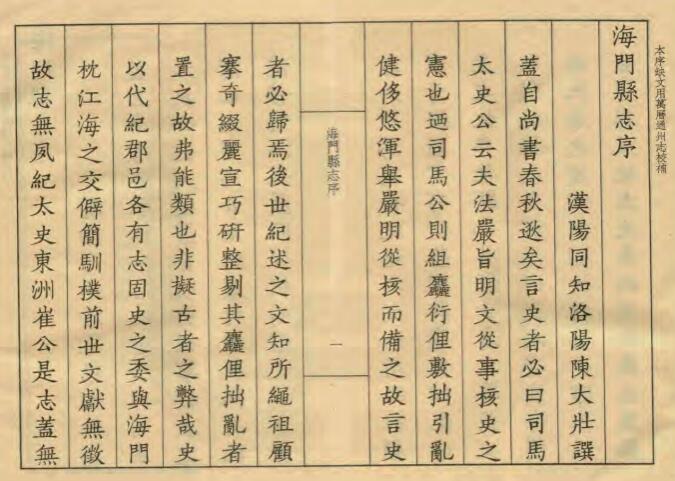 本序缺文用萬曆通州志校補
海門縣志序
漢陽同知洛陽陳大壯譔
蓋自尚書春秋逖矣言史者必曰司馬
太史公云夫法嚴旨明文從事核史之
憲也迺司馬公則組麤衍俚敷拙引亂
健侈悠渾舉嚴明從核而備之故言史
海門縣志序
一
者必歸焉後世紀述之文知所繩祖顧
搴奇綴麗宣巧研整剔其麤俚拙亂者
置之故弗能類也非擬古者之弊哉史
以代紀郡邑各有志固史之委與海門
枕江海之交僻簡馴樸前世文獻無徵
故志無夙紀太史東洲崔公是志蓋無